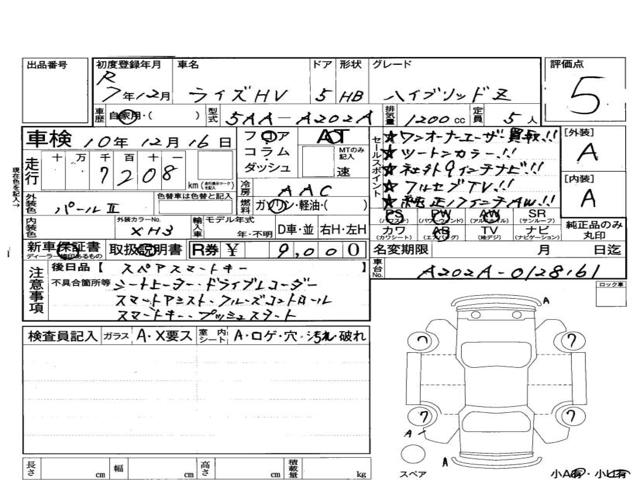 出品番号 初度登録年月 車名 ドア 形状 グレード 評価点
R 7年12月 ライズHV 5 HB ハイブリッドZ 5
車歴 自家用・( ) 型式 5AA-A202A 排気量 1200cc 定員 5人
車検 10年12月16日 フロア コラム ダッシュ AT MTのみ記入 速
セールスポイント
★ワンオーナーユーザー買取!!
★ツートンカラー!!
★社外9インチナビ!!
★フルセグTV!!
★純正17インチAW!!
[外装] A
[内装] A
現在色を記入→
走行 十 万 千 百 十 一 7208 km
外装色 パールⅡ 色替車は色替と記入
冷房 AAC
燃料 ガソリン・軽油・( )
内装色 外装カラーNo. XH3 輸入車 モデル年式 年・不明 D車・並 右H・左H
PS (パワステ) PW (パワーウィンド) AW (アルミホイル) SR (サンルーフ)
カワ (カワシート) AB (エアバッグ) TV (地デジ) ナビ (ナビゲーション)
純正品のみ丸印
新車保証書 ディーラー捺印のあるもの 取扱説明書 R券 ¥ 9,000
名変期限 月 日迄
車台No. A202A-0128161
注意事項
後日品【 スペアスマートキー 】
不具合箇所等 シートヒーター・ドライブレコーダー
スマートアシスト・クルーズコントロール
スマートキー・プッシュスタート
ロック車
検査員記入 ガラス A・X要ス 室内シート A・ロゲ・穴・汚れ・破れ
A
7 7
7 7
A
A
スペア
小A有・小ヒ有
長さ cm 幅 cm 高さ cm 積載量 kg